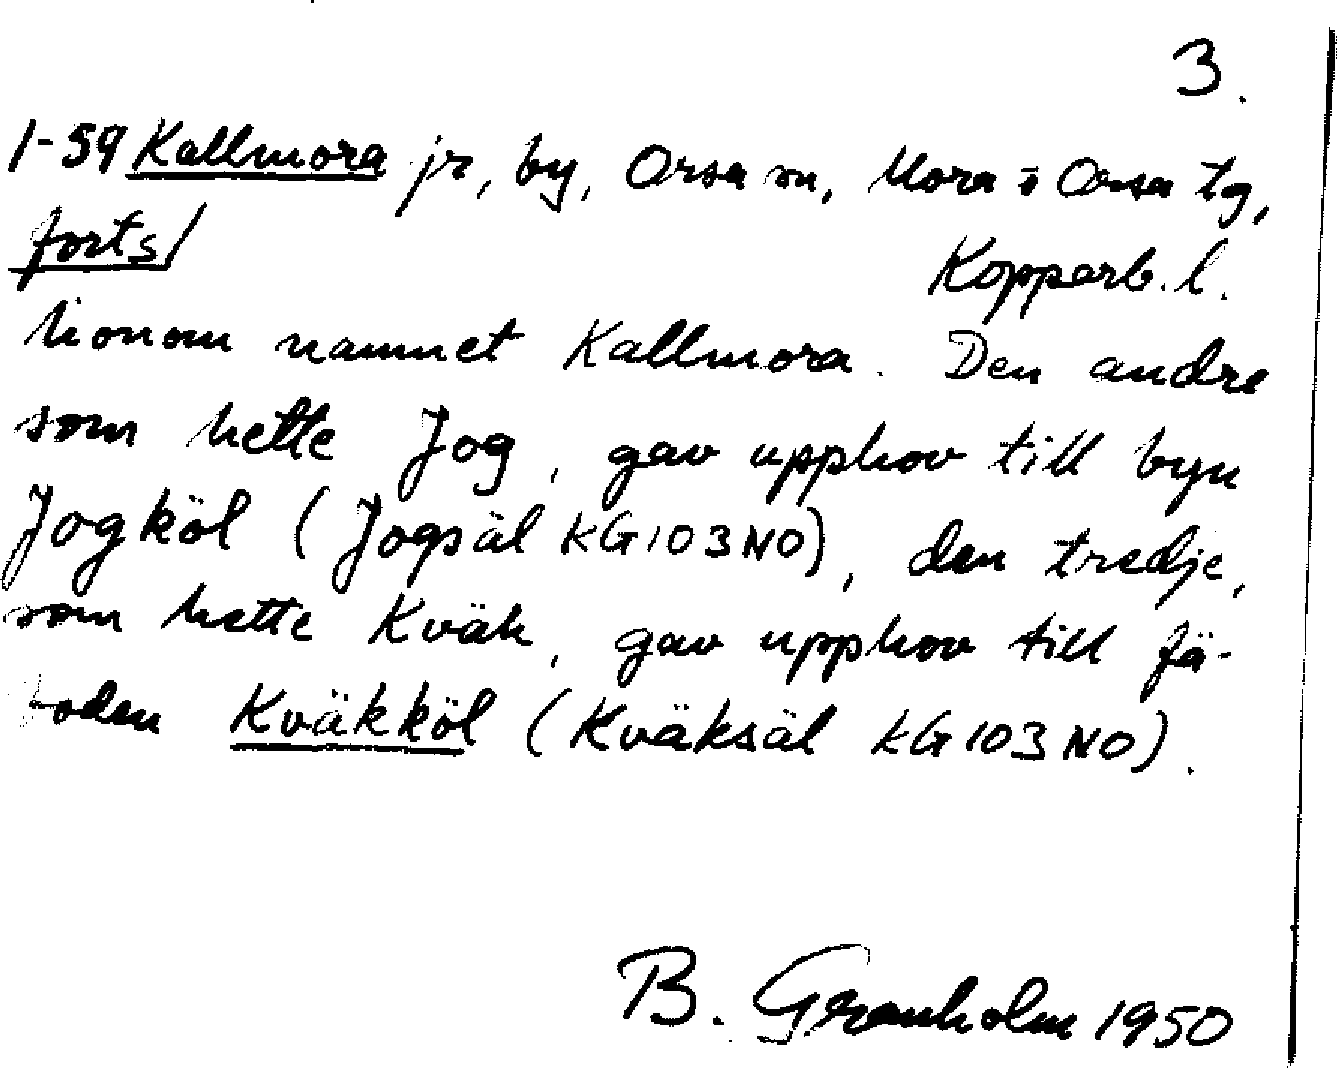 3.
1-59 Kallmora jr, by, Orsa sn, Mora o Orsa tg,
forts/
Kopparb. l.
honom namnet Kallmora. Den andre
som hette Jog, gav upphov till byn
Jogköl (Jogsäl KG103NO), den tredje,
som hette Kväk, gav upphov till fä-
boden Kväkköl (Kväksäl KG103NO).
B. Granholm 1950